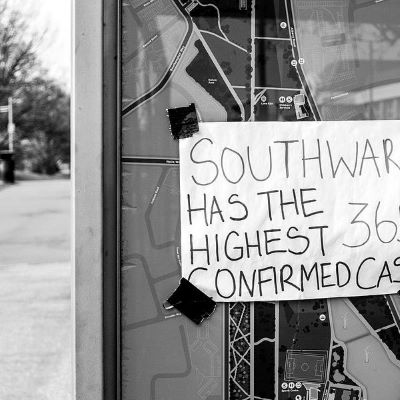 SOUTHWAR
HAS THE 36
HIGHEST
CONFIRMED CAS